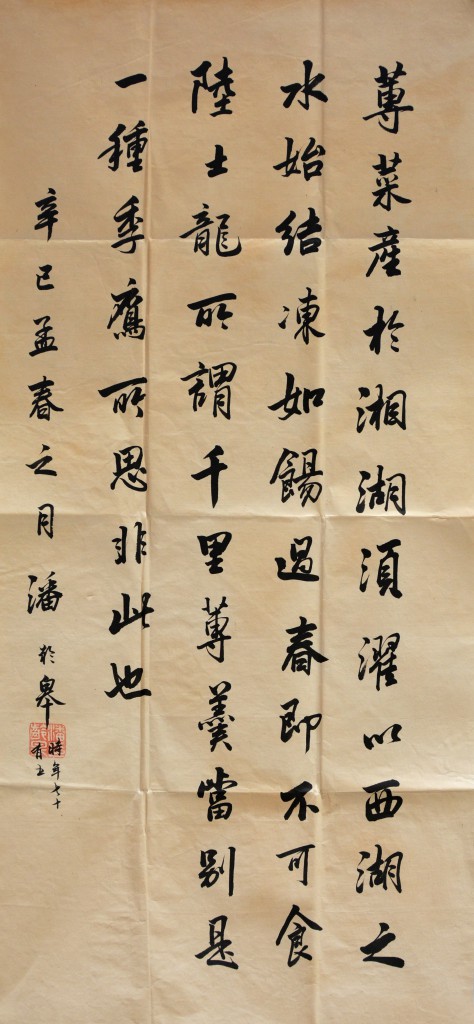 蓴菜產於湘湖須濯以西湖之
水始結凍如餳過春即不可食
陸士龍所謂千里蓴羹當別是
一種季鷹所思非此也
辛巳孟春之月潘齡皋
時年七十
有五